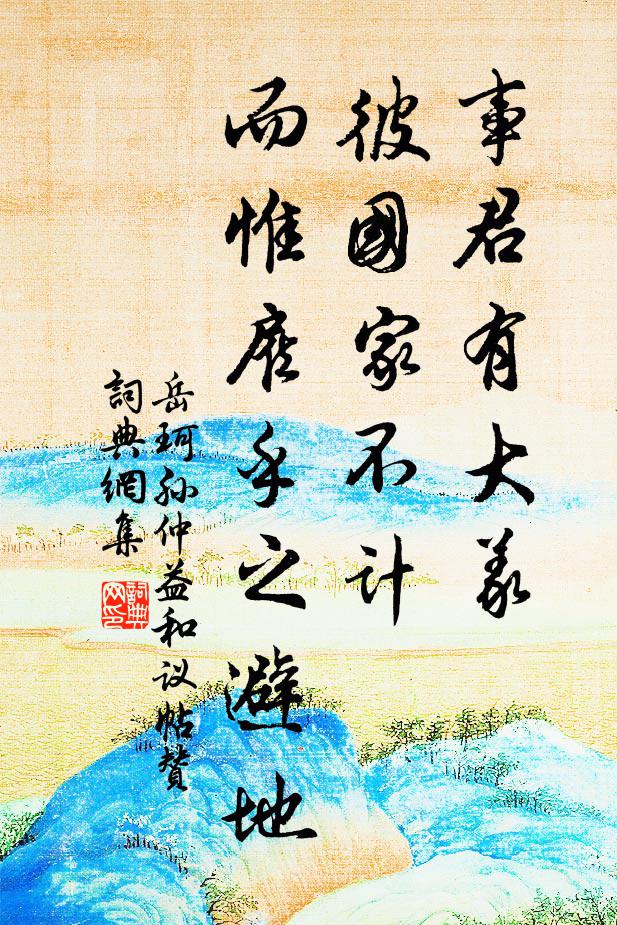 事君有大义
彼國家不计
而惟雇乎之避地
岳珂孙仲益和议帖赞
詞典網集
詞典网印